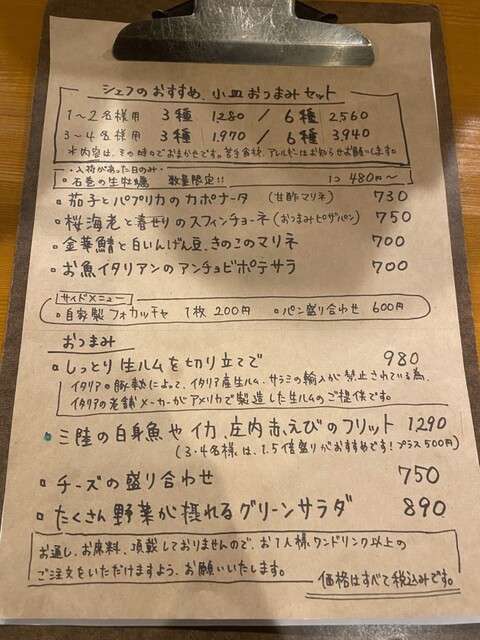 シェフのおすすめ、小皿おつまみセット
1～2名様用 3種 1,280 / 6種 2,560
3～4名様用 3種 1,970 / 6種 3,940
※内容は、その時々でおまかせです。苦手食材、アレルギーはお知らせお願いします。
・入荷があった日のみ・
・石巻の生牡蠣 数量限定!! 1コ 480円～
・茄子とパプリカのカポナータ (甘酢マリネ) 730
・桜海老と春せりのスフィンチョーネ (おつまみピザパン) 750
・金華鯖と白いんげん豆、きのこのマリネ 700
・お魚イタリアンのアンチョビポテサラ 700
サイドメニュー
・自家製フォカッチャ 1枚 200円 ・パン盛り合わせ 600円
おつまみ
・しっとり生ハムを切り立てで 980
イタリアの豚熱によって、イタリア産生ハム、サラミの輸入が禁止されている為、
イタリアの老舗メーカーがアメリカで製造した生ハムのご提供です。
・三陸の白身魚やイカ、庄内赤えびのフリット 1290
(3・4名様は、1.5倍盛りがおすすめです! プラス500円)
・チーズの盛り合わせ 750
・たくさん野菜が摂れるグリーンサラダ 890
お通し、お席料、頂戴しておりませんので、お1人様、ワンドリンク以上の
ご注文をいただけますよう、お願いいたします。
価格はすべて税込みです。